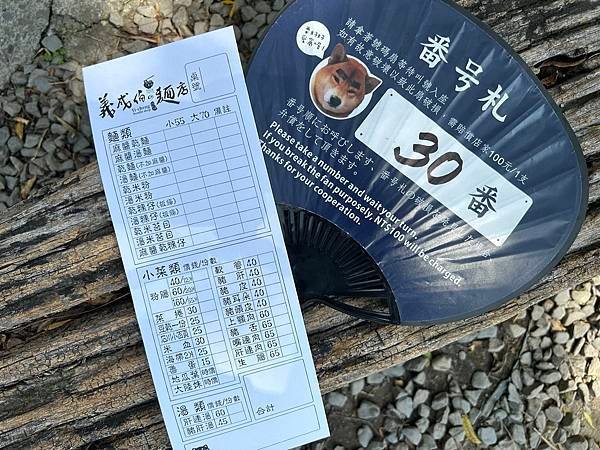 義成伯の麵店
桌號
麵類 小55 大70 備註
麻醬乾麵
麻醬湯麵
乾麵(不加麻醬)
湯麵(不加麻醬)
乾米粉
湯米粉
乾粿仔(粄條)
湯粿仔(粄條)
乾米苔目
湯米苔目
麻醬乾粿仔
小菜類 價錢/份數
粉腸 40/
60/
100/
菜捲 30
豆乾一份 25
25
米血 30
海帶2片 25
蛋 15
地瓜葉 時價
大陸妹 時價
軟管 40
豬肝 40
豬皮 40
豬耳朵 40
豬頭皮 40
豬舌 65
嘴邊肉 65
肝連肉 65
生腸 65
湯類 價錢/份數
肝連湯 60
豬肝湯 45
合計
請拿著號碼扇等待叫號入座
如有故意破壞以致此扇破損,需賠償店家100元/1支
番号札
30番
番号順にお呼びします。
Please take a number and wait your turn.
If you break the fan purposely, NT$100 will be charged.
Thanks for your cooperation.